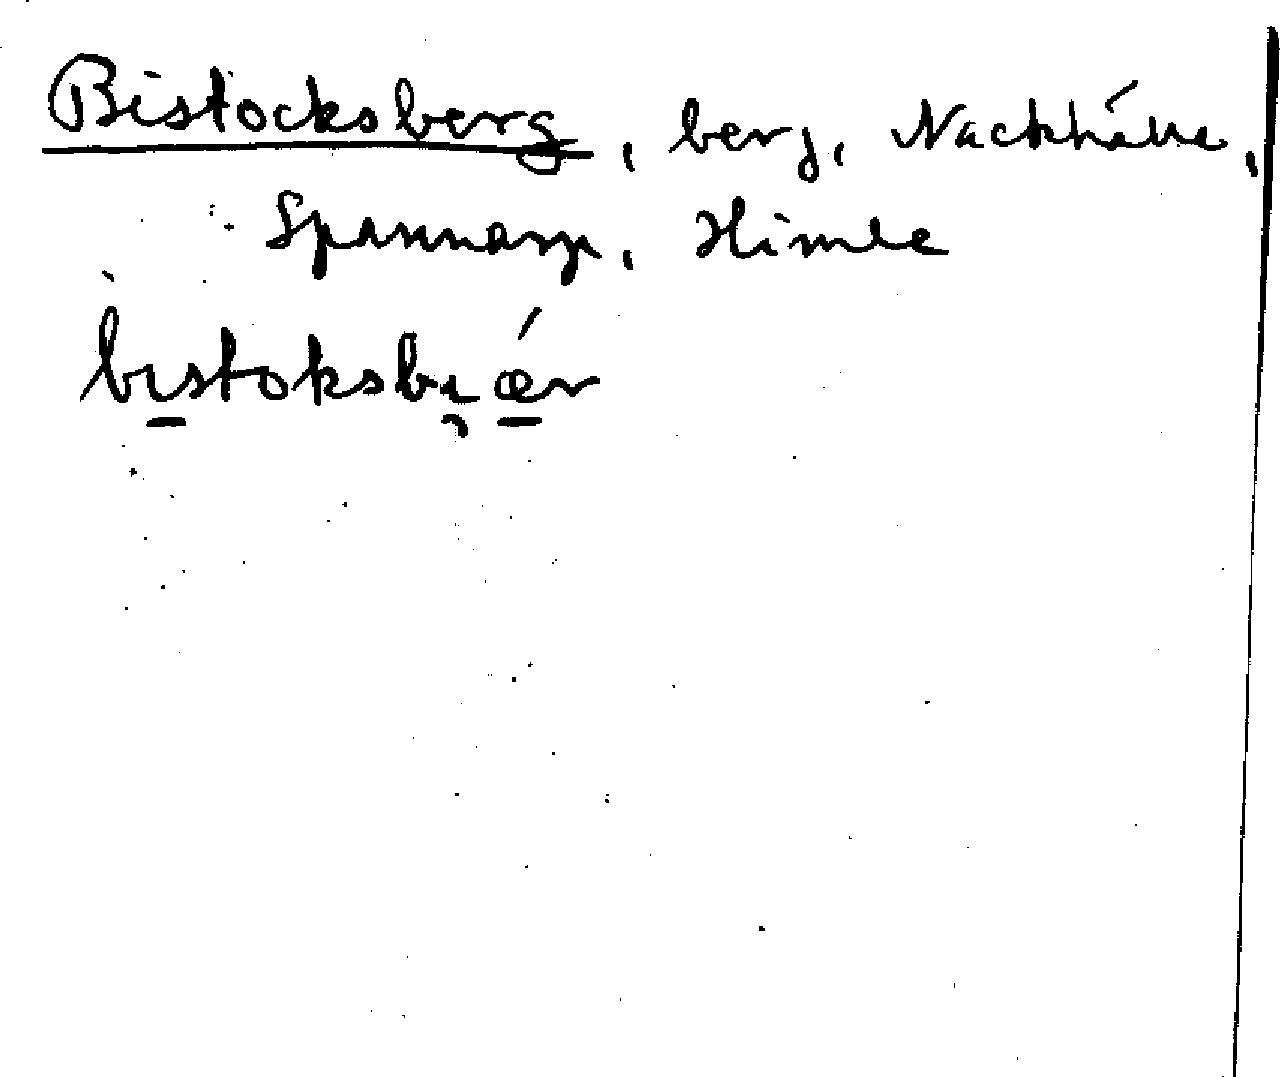 Bistocksberg, berg, Nackhälle,
Spannarp, Himle
bistoksbi̯ǽr